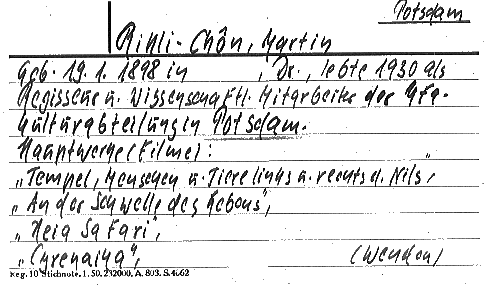 Potsdam
Rikli-Chôn, Martin
Geb. 19.1.1898 in , Dr., lebte 1930 als
Regisseur u. Wissenschaftl. Mitarbeiter der Ufa-
Kulturabteilung in Potsdam.
Hauptwerke (Filme):
„Tempel, Menschen u. Tiere links u. rechts d. Nils",
„An der Schwelle des Lebens",
„Heia Safari",
„Cyrenaika", (Wendon)
Reg. 10 Stichnote. 1. 50. 232000. A. 803. S. 4662